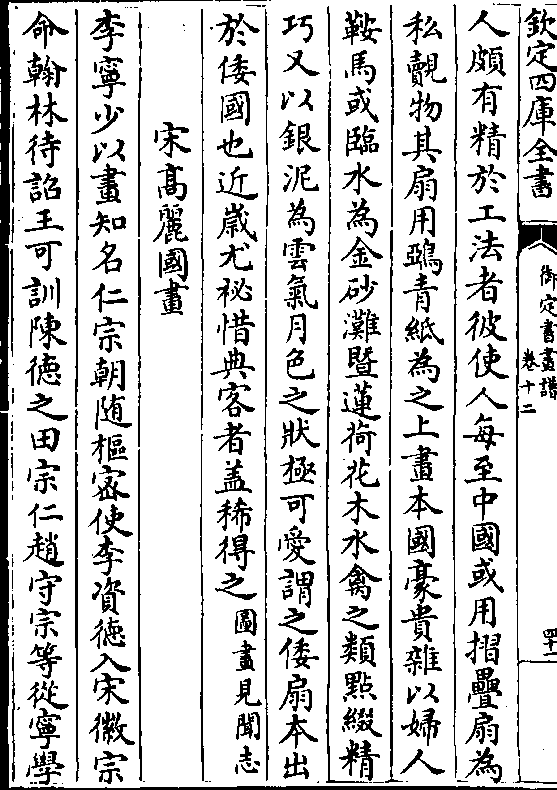 欽定四庫全書
御定書畫譜
卷十二
四十一
人頗有精於工法者彼使人每至中國或用摺疊扇為
私覿物其扇用鵶青紙為之上畫本國豪貴雜以婦人
鞍馬或臨水為金砂灘暨蓮荷花木水禽之類點綴精
巧又以銀泥為雲氣月色之狀極可愛謂之倭扇本出
於倭國也近歲尤祕惜典客者盖稀得之圖畫見聞志
宋髙麗國畫
李寧少以畫知名仁宗朝随樞宻使李資徳入宋徽宗
命翰林待詔王可訓陳徳之田宗仁趙守宗等從寧學